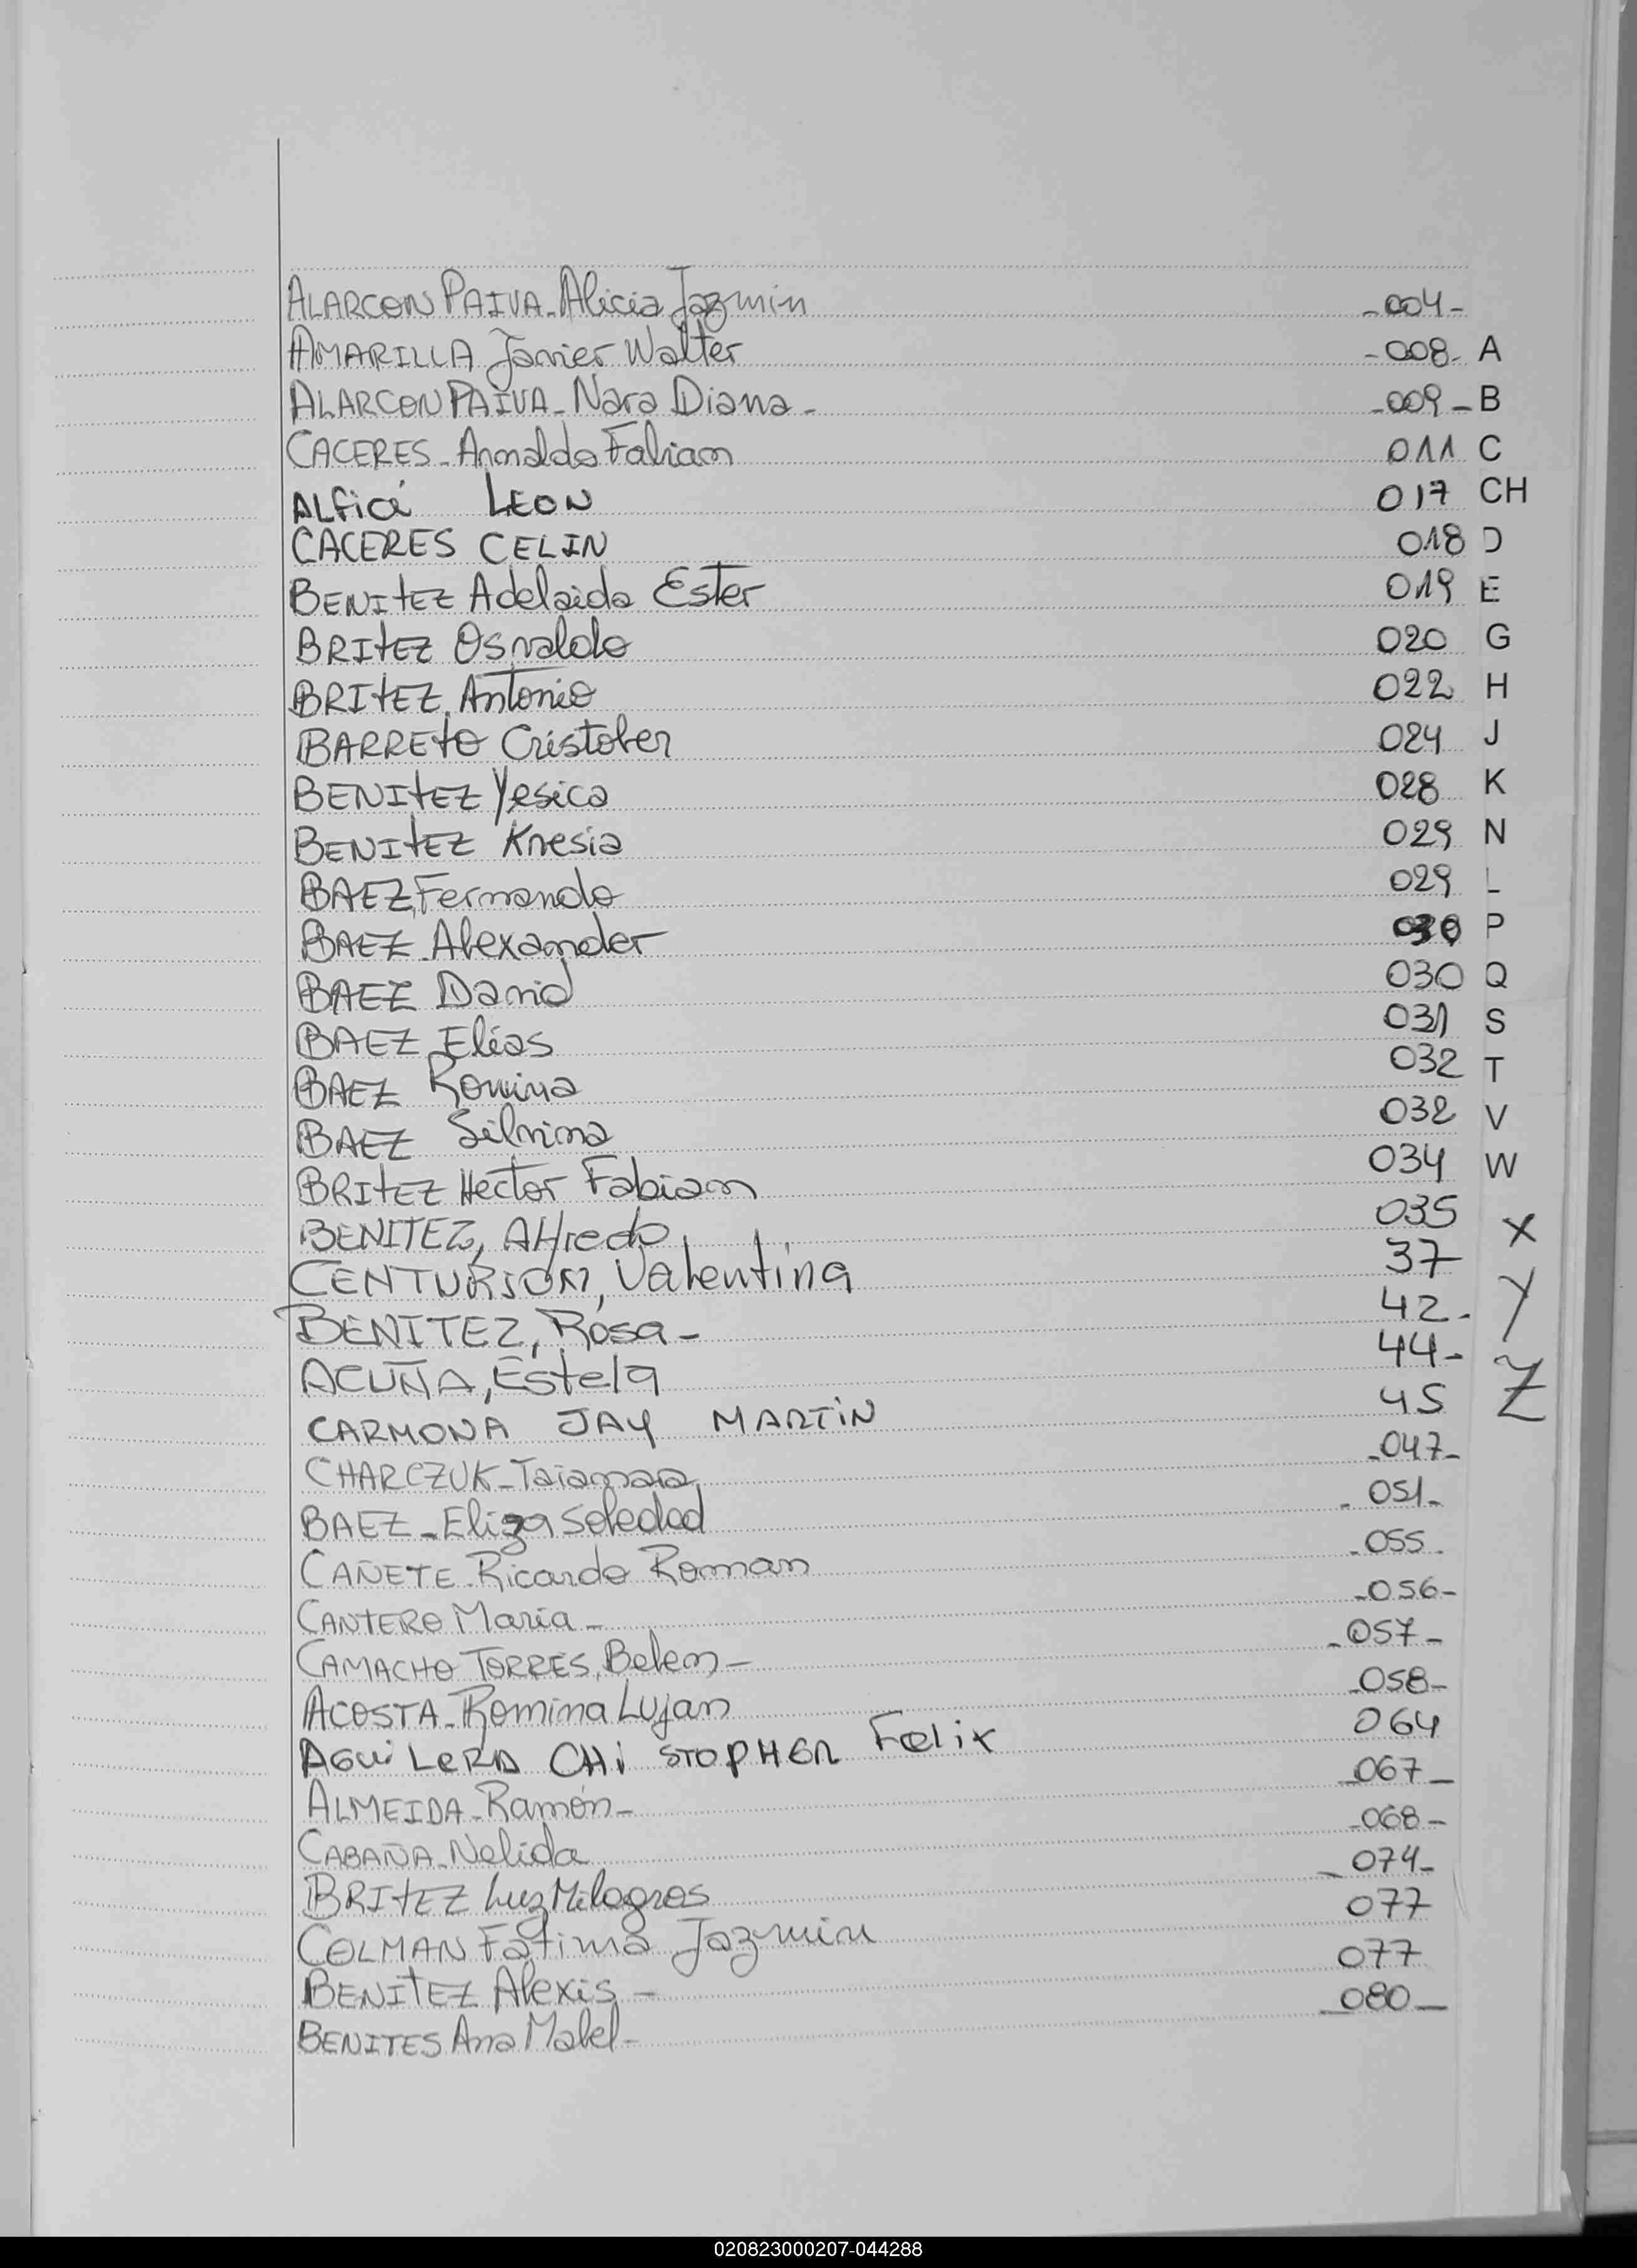 ALARCON PAIVA - Alicia Jazmin -004-
AMARILLA Javier Walter -008- A
ALARCON PAIVA - Nara Diana - -009- B
CACERES - Arnaldo Fabian 011 C
ALFicá LEON 017 CH
CACERES CELIN 018 D
BENITEZ Adelaida Ester 019 E
BRITEZ Osvaldo 020 G
BRITEZ Antonio 022 H
BARRETO Cristober 024 J
BENITEZ Yesica 028 K
BENITEZ Knesia 029 N
BAEZ, Fernando 029 L
BAEZ Alexander 030 P
BAEZ David 030 Q
BAEZ Elías 031 S
BAEZ Romina 032 T
BAEZ Silvina 032 V
BRITEZ Hector Fabian 034 W
BENITEZ, Alfredo 035 X
CENTURION, Valentina 37
BENITEZ, Rosa - 42- Y
ACUÑA, Estela 44-
CARMONA JAY MARTIN 45 Z
CHARCZUK - Taiamara -047-
BAEZ - Eliza Soledad - 051-
CAÑETE - Ricardo Roman -055-
CANTERO Maria - -056-
CAMACHO TORRES, Belen - -057-
ACOSTA - Romina Lujan -058-
AGUILERA CHISTOPHER Felix 064
ALMEIDA - Ramón - -067-
CABAÑA - Nelida -068-
BRITEZ Luz Milagros -074-
COLMAN Fátima Jazmin 077
BENITEZ Alexis - 077
BENITES Ana Mabel - -080-
020823000207-044288